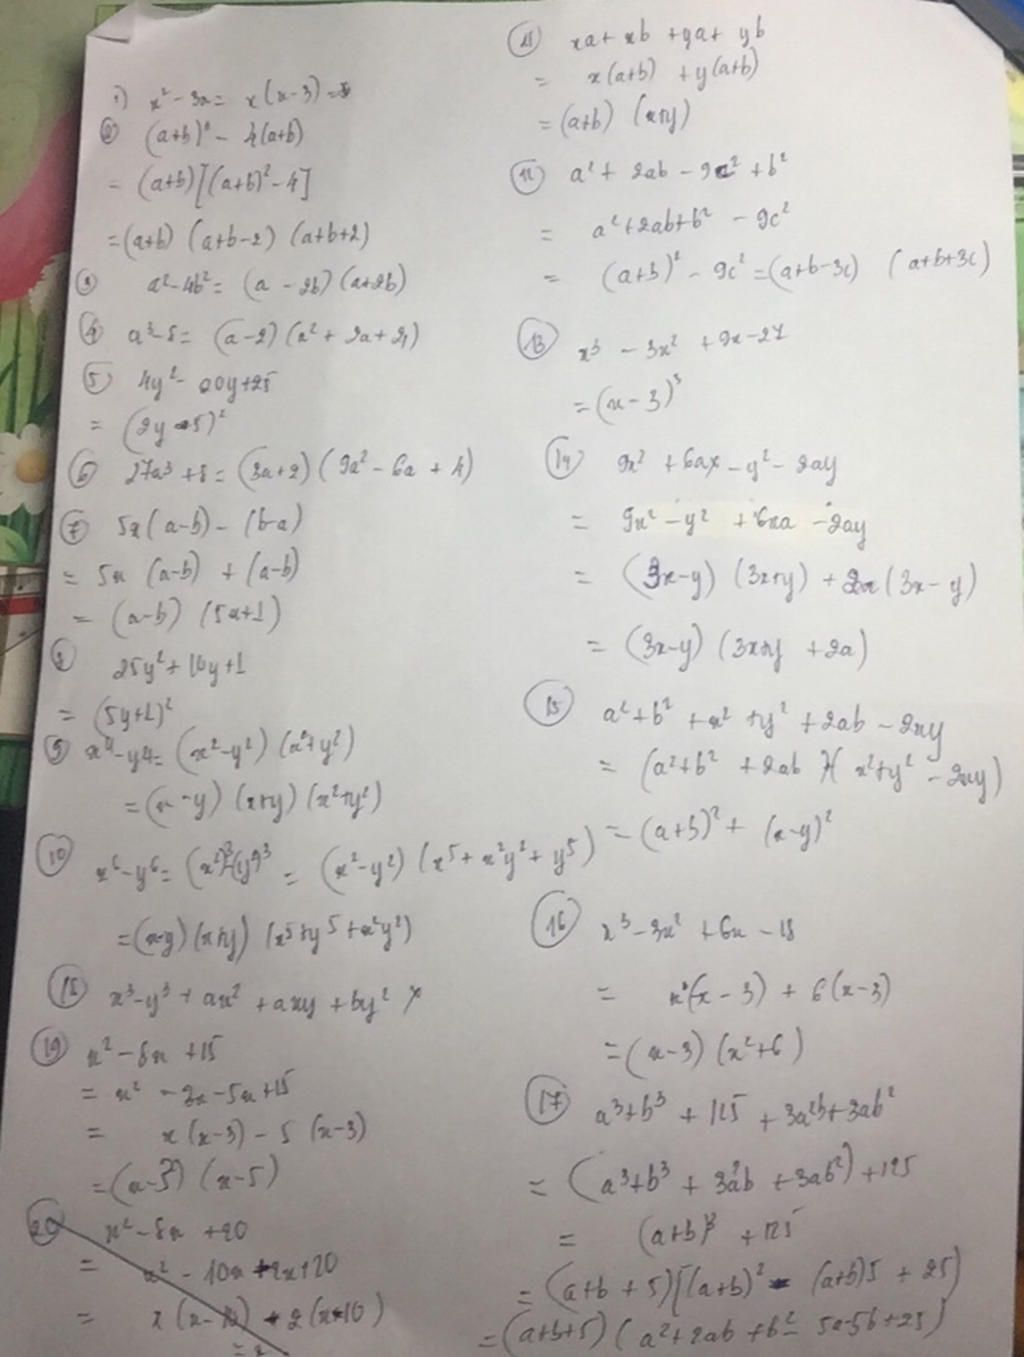 1) x² - 3x = x(x-3)
2) (a+b)³ - 4(a+b)
= (a+b)[(a+b)² - 4]
= (a+b) (a+b-2) (a+b+2)
3) a² - 4b² = (a - 2b) (a+2b)
4) a³ - 8 = (a-2) (a² + 2a + 4)
5) 4y² - 20y + 25
= (2y - 5)²
6) 27a³ + 8 = (3a+2) (9a² - 6a + 4)
7) 5x(a-b) - (b-a)
= 5x (a-b) + (a-b)
= (a-b) (5x+1)
8) 25y² + 10y + 1
= (5y+1)²
9) x⁴ - y⁴ = (x² - y²) (x² + y²)
= (x - y) (x+y) (x²+y²)
10) x⁶ - y⁶ = (x²)³ - (y²)³ = (x² - y²) (x⁵ + x²y² + y⁵)
= (x-y) (x+y) (x⁵ + y⁵ + x²y²)
18) x³ - y³ + ax² + axy + by²
19) x² - 8x + 15
= x² - 3x - 5x + 15
= x(x-3) - 5 (x-3)
= (x-3) (x-5)
20) x² - 8x + 20
= x² - 10x + 2x + 20
= x(x-10) + 2(x-10)
11) xa + xb + ya + yb
= x(a+b) + y(a+b)
= (a+b) (x+y)
12) a² + 2ab - 9c² + b²
= a² + 2ab + b² - 9c²
= (a+b)² - 9c² = (a+b-3c) (a+b+3c)
13) x³ - 3x² + 9x - 27
= (x - 3)³
14) 9x² + 6ax - y² - 2ay
= 9x² - y² + 6xa - 2ay
= (3x-y) (3x+y) + 2a(3x - y)
= (3x-y) (3x+y + 2a)
15) a² + b² + x² + y² + 2ab - 2xy
= (a² + b² + 2ab)+(x² + y² - 2xy)
= (a+b)² + (x-y)²
16) x³ - 3x² + 6x - 18
= x²(x - 3) + 6(x-3)
= (x-3) (x²+6)
17) a³ + b³ + 125 + 3a²b + 3ab²
= (a³+b³ + 3a²b + 3ab²) + 125
= (a+b)³ + 125
= (a+b + 5)[(a+b)² - (a+b)5 + 25)
= (a+b+5) (a² + 2ab + b² - 5a - 5b + 25)